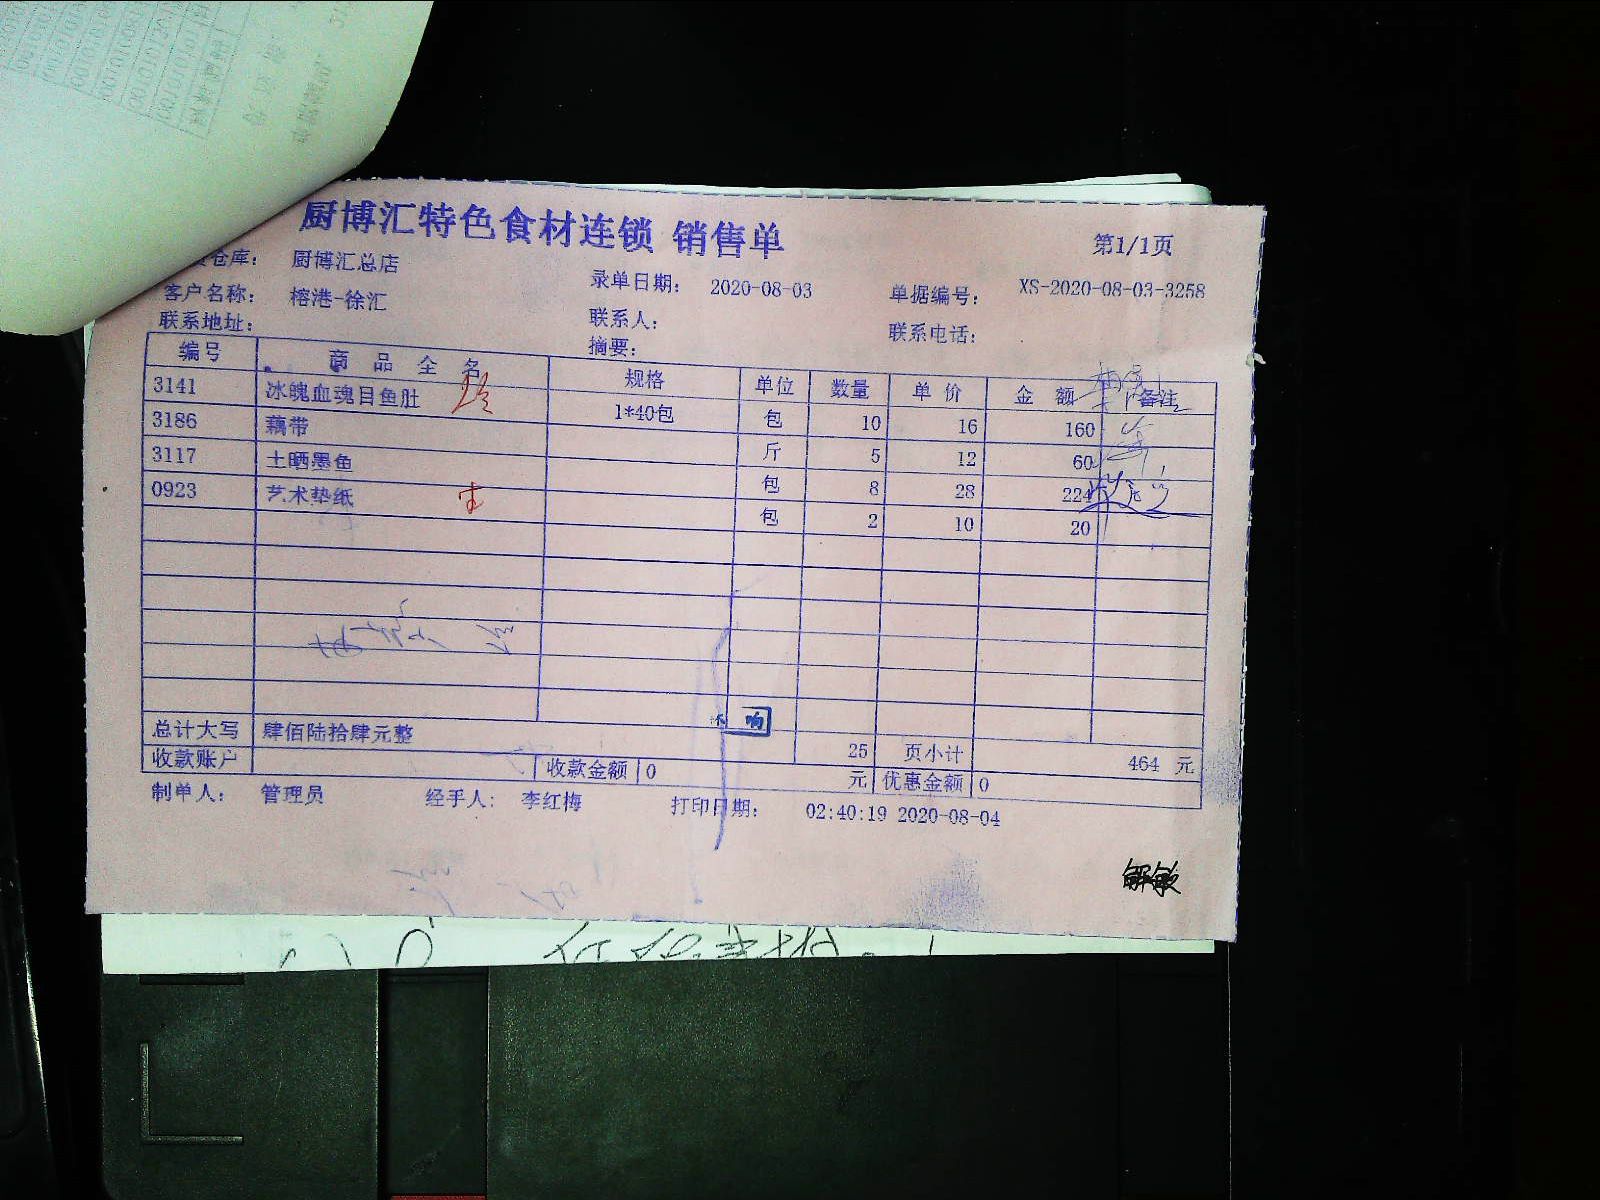 厨博汇特色食材连锁 销售单
第1/1页
仓库： 厨博汇总店
录单日期： 2020-08-03
单据编号： XS-2020-08-03-3258
客户名称： 榕港-徐汇
联系人：
联系电话：
联系地址：
摘要：
编号 商品全名 规格 单位 数量 单价 金额 备注
3141 冰魄血魂目鱼肚 1*40包 包 10 16 160
3186 藕带 斤 5 12 60
3117 土晒墨鱼 包 8 28 224
0923 艺术垫纸 包 2 10 20
总计大写 肆佰陆拾肆元整 25 页小计 464 元
收款账户 收款金额 0 元 优惠金额 0
制单人： 管理员 经手人： 李红梅 打印日期： 02:40:19 2020-08-04